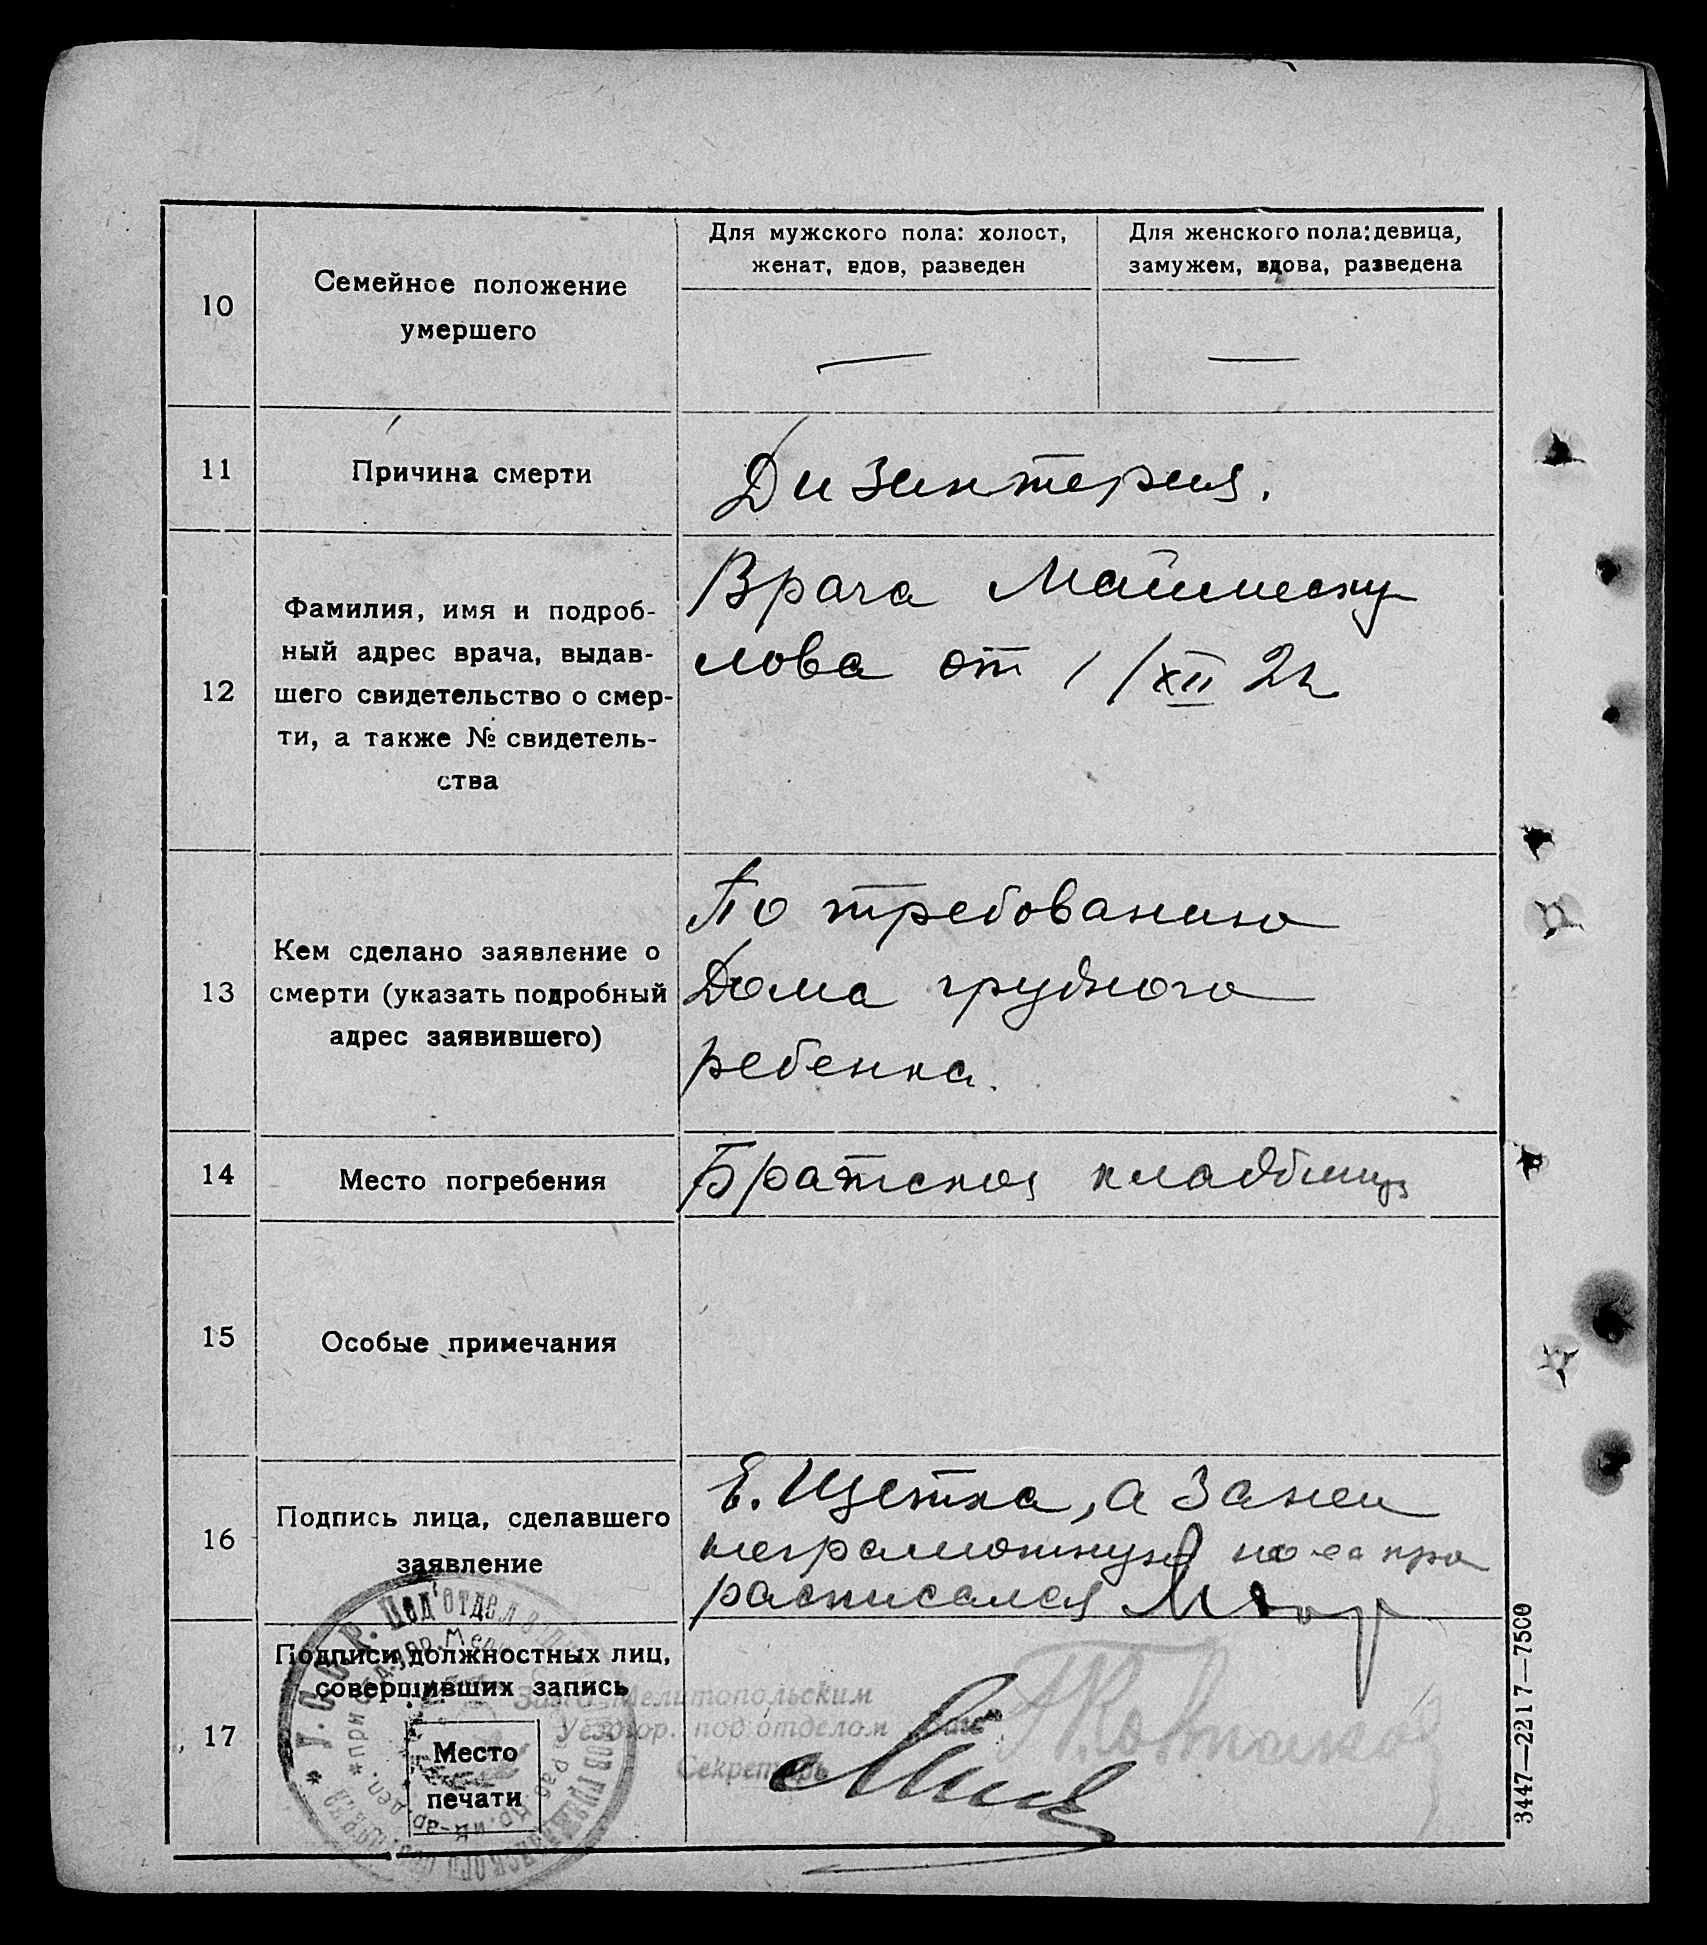 10
Семейное положение
умершего
Для мужского пола: холост,
женат, вдов, разведен
Для женского пола: девица,
замужем, вдова, разведена
—
—
11
Причина смерти
Дизинтерия.
12
Фамилия, имя и подроб-
ный адрес врача, выдав-
шего свидетельство о смер-
ти, а также № свидетель-
ства
Врача
лова от 1/XII 22
13
Кем сделано заявление о
смерти (указать подробный
адрес заявившего)
По требованию
Дома грудного
ребенка.
14
Место погребения
Братское кладбище
15
Особые примечания
16
Подпись лица, сделавшего
заявление
Е. Щетка, а за нея
неграмотную по ея про
расписался
17
Подписи должностных лиц,
совершивших запись
Место
печати
Зав. Мелитопольским
под'отделом
Секретарь
У. С. С. Р. Под'отдел
3447—2217—7500